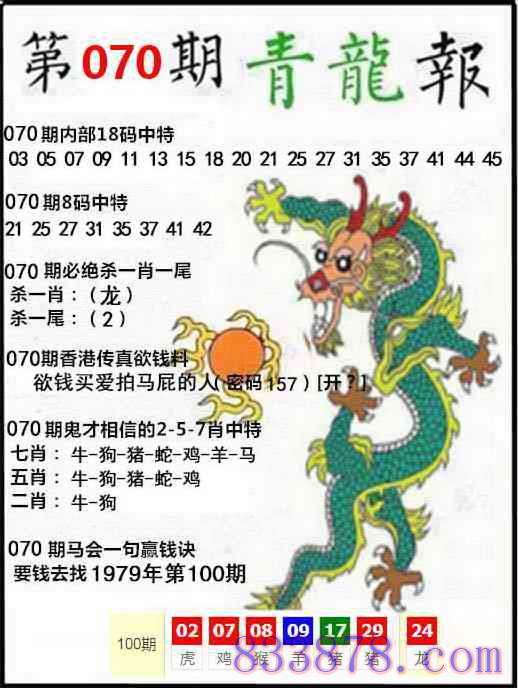 第070期 青龍報
070期内部18码中特
03 05 07 09 11 13 15 18 20 21 25 27 31 35 37 41 44 45
070期8码中特
21 25 27 31 35 37 41 42
070期必绝杀一肖一尾
杀一肖：（龙）
杀一尾：（2）
070期香港传真欲钱料
欲钱买爱拍马屁的人(密码157)[开？]
070期鬼才相信的2-5-7肖中特
七肖：牛-狗-猪-蛇-鸡-羊-马
五肖：牛-狗-猪-蛇-鸡
二肖：牛-狗
070期马会一句赢钱诀
要钱去找1979年第100期
100期 02 07 08 09 17 29 24
虎 鸡 猴 羊 猪 猪 龙
833878.com